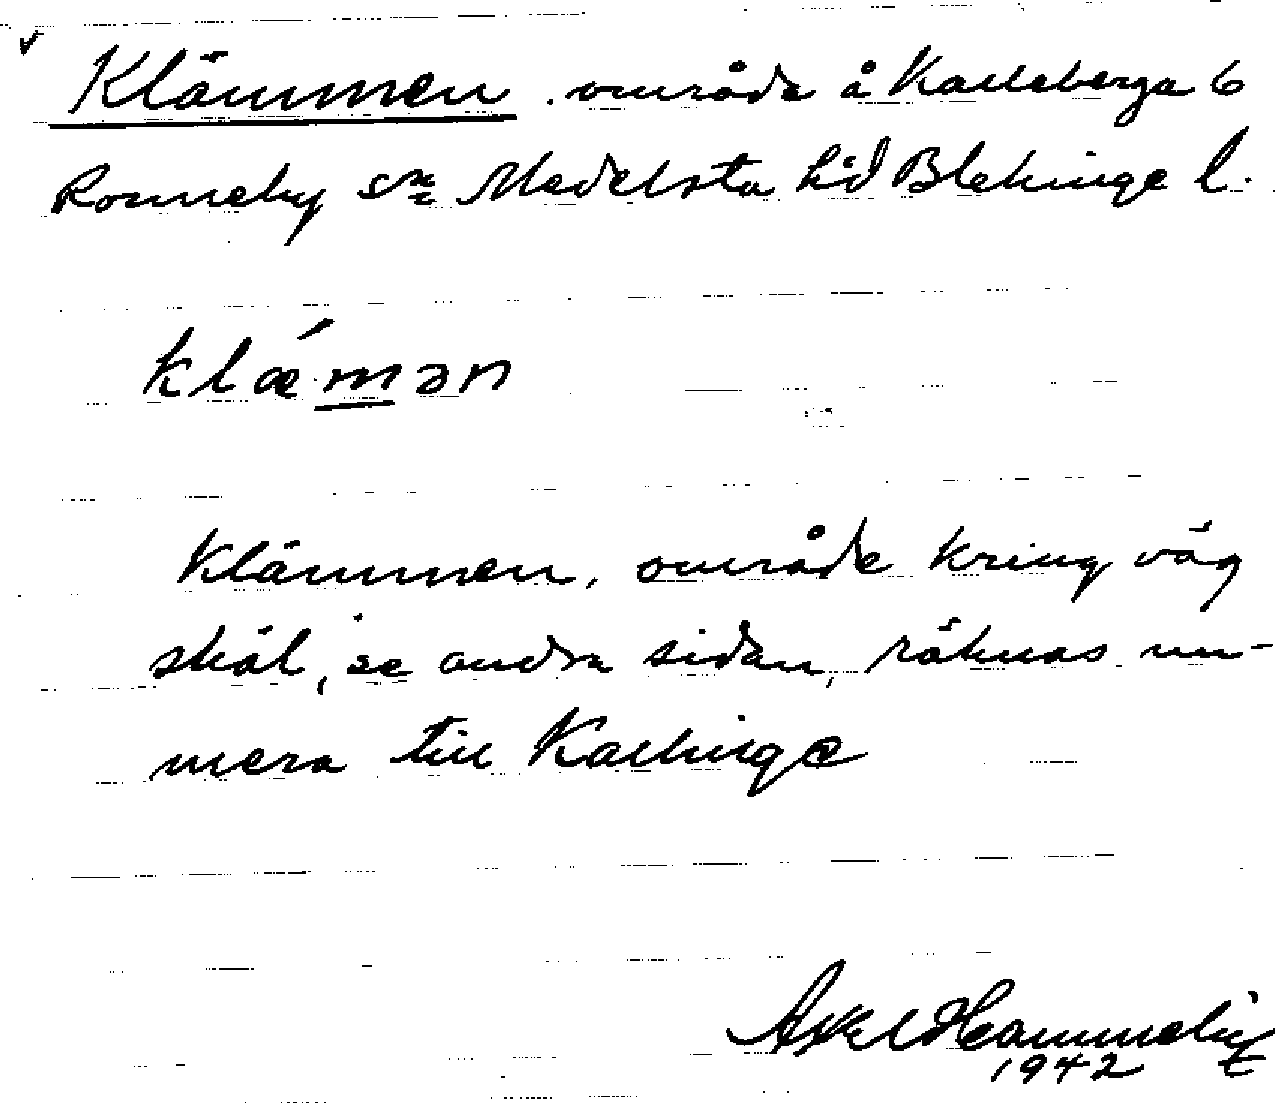 Klämmen. område å Kalleberga 6
Ronneby sn Medelsta hd Blekinge l.
klǽ·mən
Klämmen, område kring väg
skäl, se andra sidan, räknas nu-
mera till Kallinge
Axel
1942